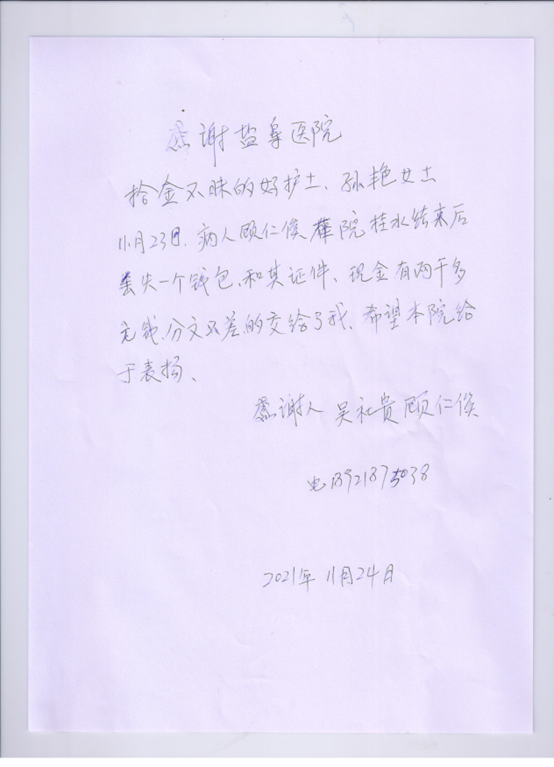 感谢盐阜医院
拾金不昧的好护士、孙艳女士
11月23日.病人顾仁俊 院挂水结束后
丢失一个钱包、和其证件、现金有两千多
元钱、分文不差的交给了我、希望本院给
于表扬、
感谢人 吴社贵 顾仁俊
电
2021年11月24日